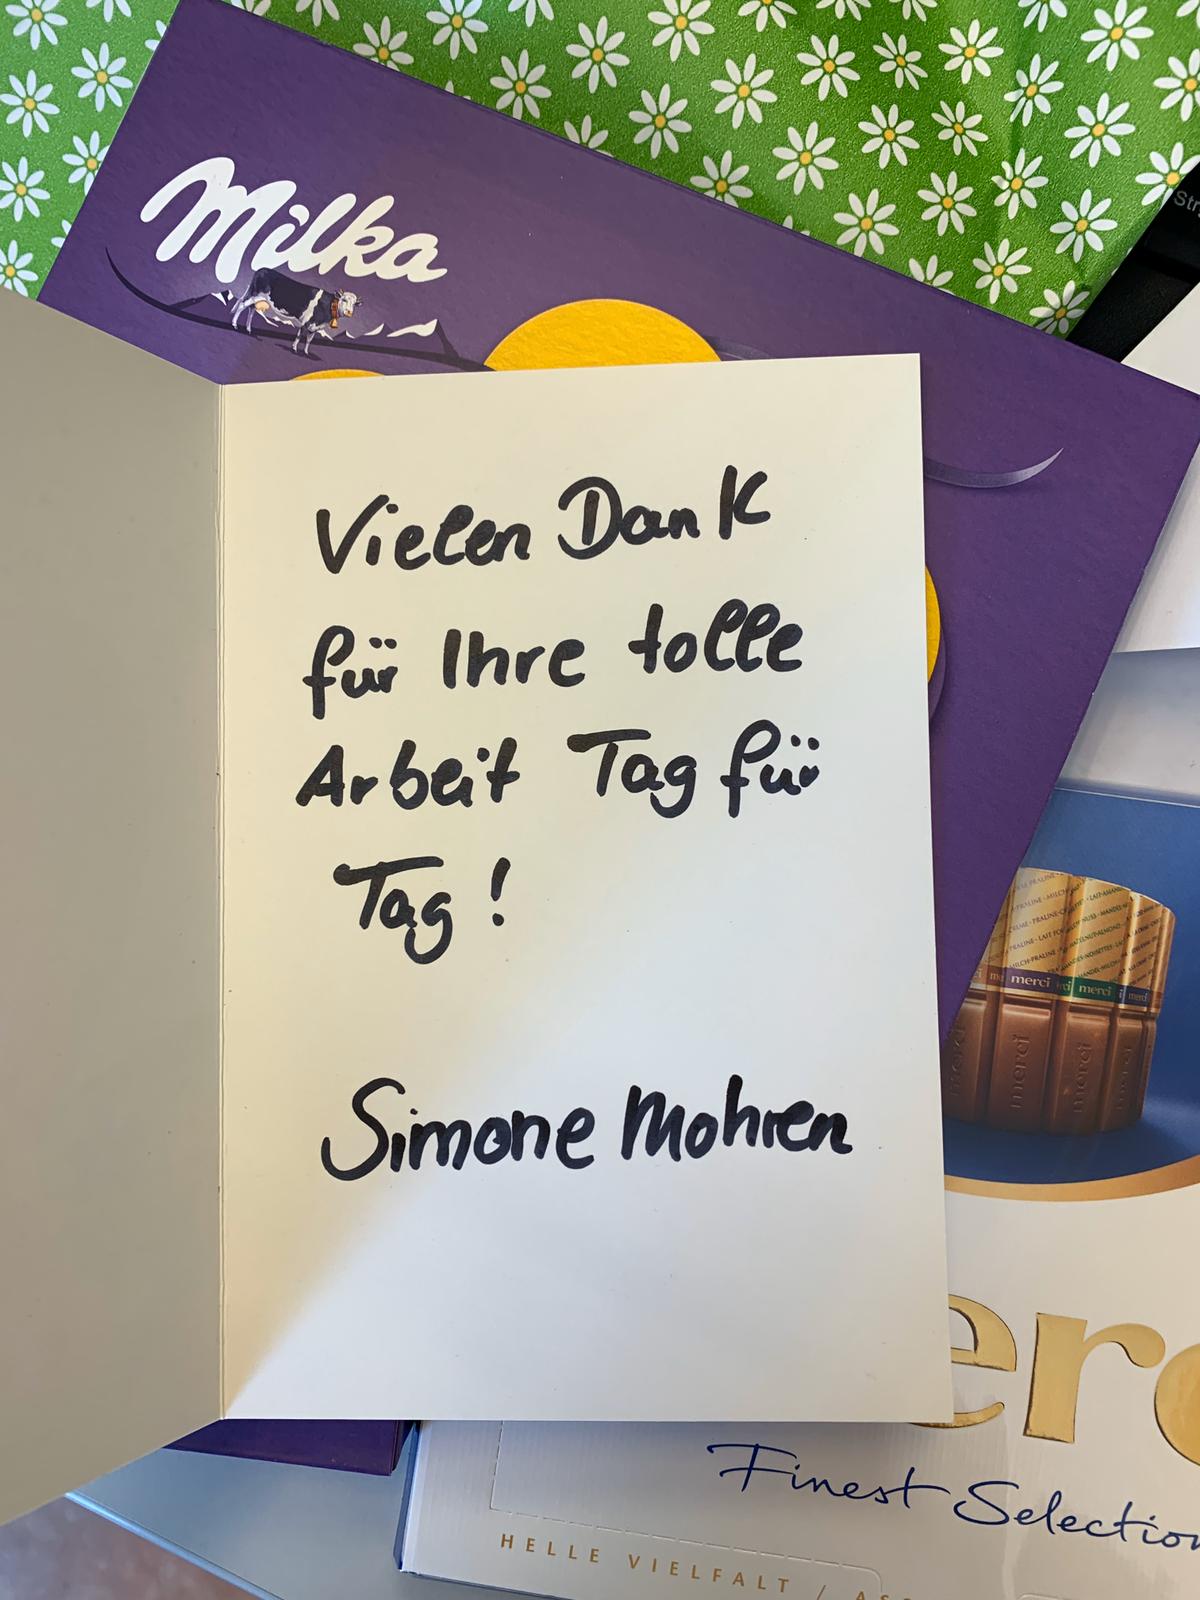 Str
Milka
Vielen Dank
für Ihre tolle
Arbeit Tag für
Tag!
Simone Mohren
merci merci merci
merci merci merci
erc
Finest Selection
HELLE VIELFALT /